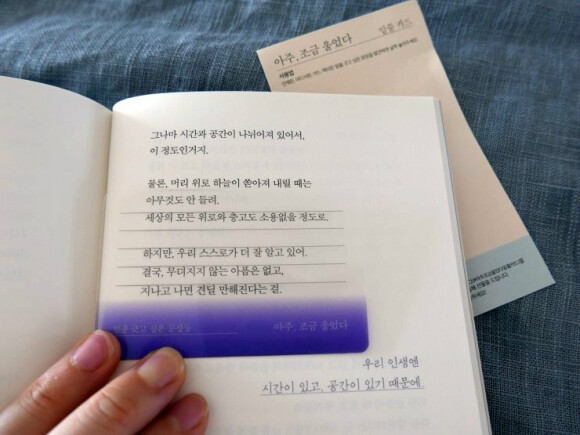 아주, 조금 울었다
밑줄 카드
사용법
그나마 시간과 공간이 나뉘어져 있어서,
이 정도인거지.
물론, 머리 위로 하늘이 쏟아져 내릴 때는
아무것도 안 들려.
세상의 모든 위로와 충고도 소용없을 정도로.
하지만, 우리 스스로가 더 잘 알고 있어.
결국, 무뎌지지 않는 아픔은 없고,
지나고 나면 견딜 만해진다는 걸.
밑줄 긋고 싶은 문장들
아주, 조금 울었다
우리 인생엔
시간이 있고, 공간이 있기 때문에.